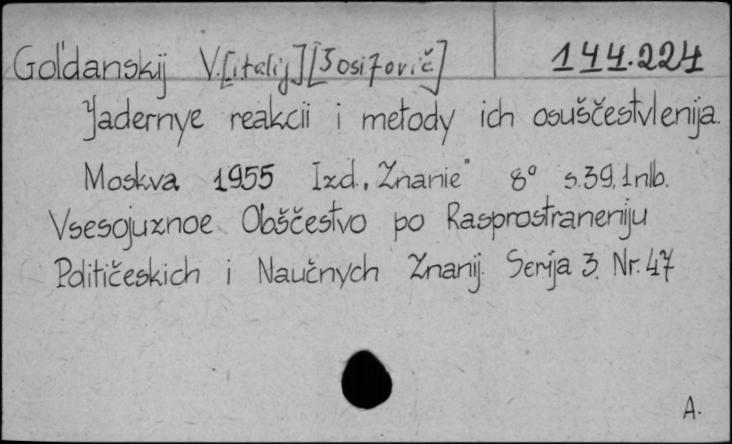 Gol'danskij V.[italij][Iosifovič] 144.224
Jadernye reakcii i metody ich osuščestvlenija.
Moskva 1955 Izd. „Znanie" 8° s.39,1nlb.
Vsesojuznoe Obščestvo po Rasprostraneniju
Političeskich i Naučnych Znanij. Serija 3. Nr. 47
A.